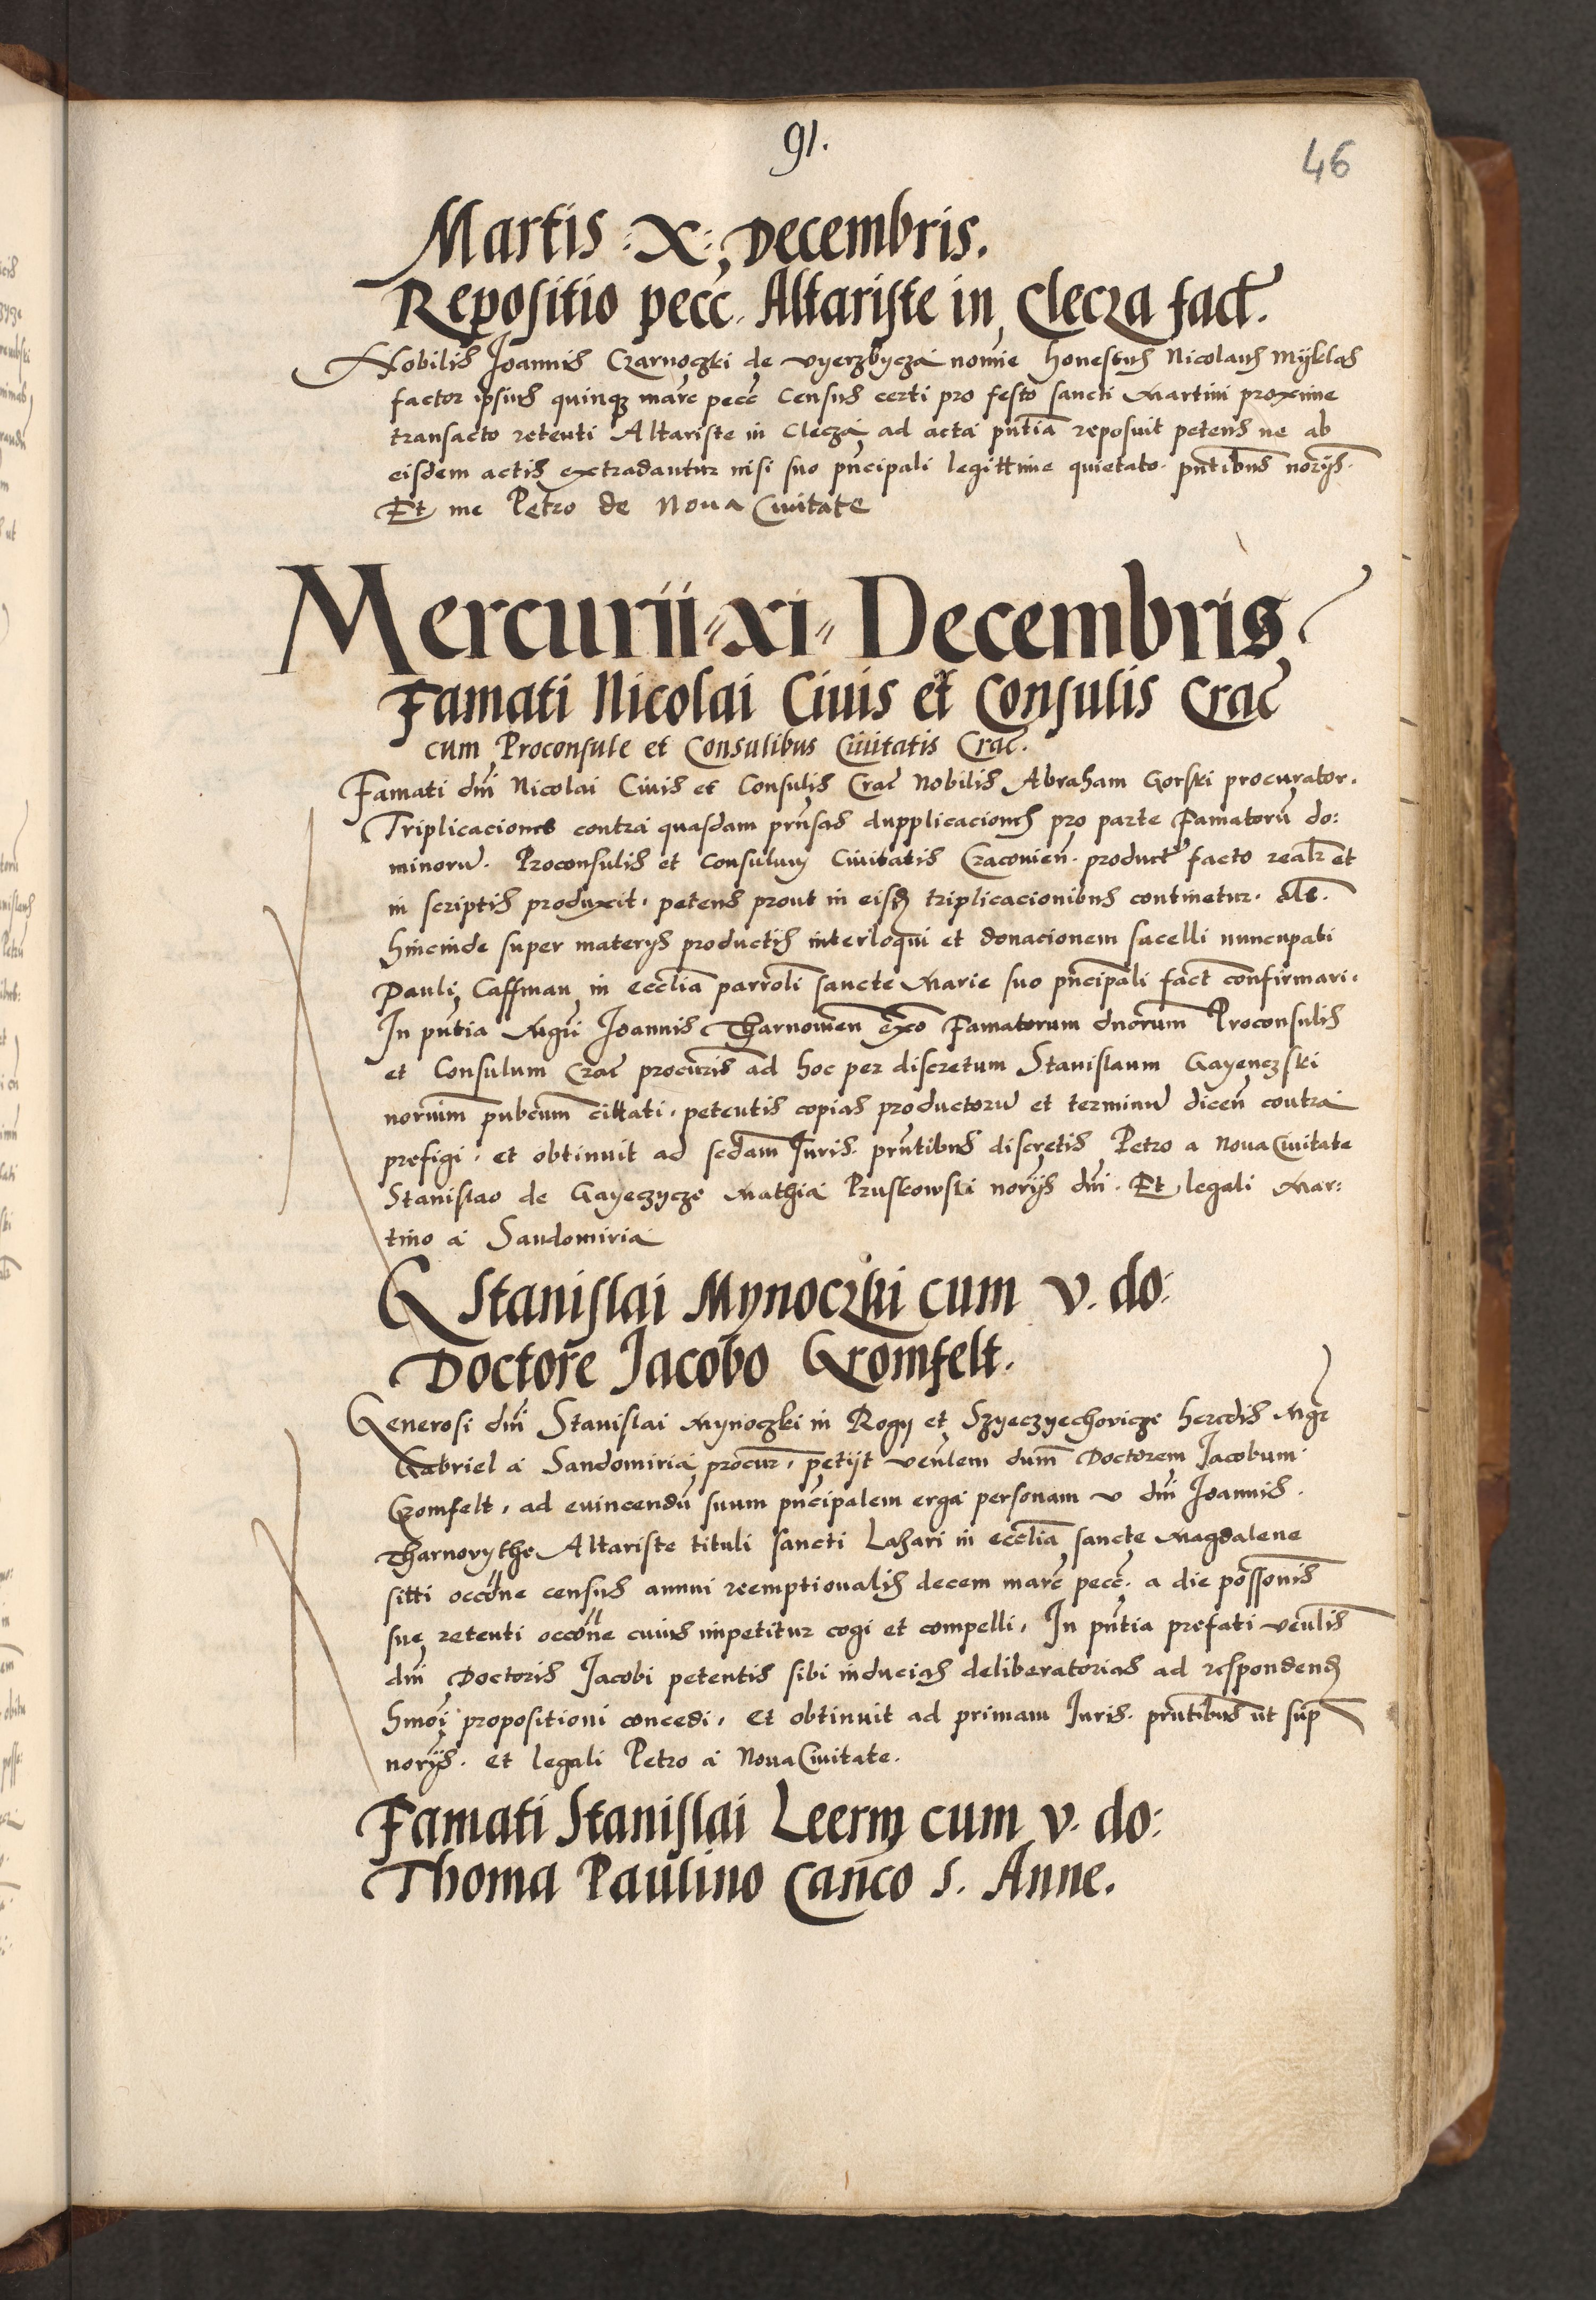 91.
46
Martis :X: Decembris.
Repositio pecc. Altariste in Clecza fact.
Nobilis Joannis Czarnoczki de Vyerzbycza nomine honestus Nicolaus Myklas
factor ipsius quinque marc pecc census certi pro festo sancti Martini proxime
transacto retenti Altariste in Clecza ad acta pntia reposuit petens ne ab
eisdem actis extradantur nisi suo pncipali legittime quietato. pntibus norijs.
Et me Petro de Noua Ciuitate
Mercurii xi Decembris
Famati Nicolai Ciuis et Consulis Crac
cum Proconsule et Consulibus Ciuitatis Crac.
Famati dni Nicolai Ciuis et Consulis Crac Nobilis Abraham Gorski procurator.
Triplicaciones contra quasdam prnsas dupplicaciones pro parte Famatoru do:
minoru. Proconsulis et Consulum Ciuitatis Cracouien. product facto realr et
in scriptis produxit. petens prout in eisd triplicacionibus continetur. als.
hincinde super materys productis interloqui et donacionem sacelli nuncupati
Pauli Caffman in ecclia parroli sancte Marie suo pncipali fact confirmari.
In pntia Mgri Joannis Tharnowien exo Famatorum dnorum Proconsulis
et Consulum Crac procuris ad hoc per discretum Stanislaum Gayenczski
norium pubcum cittati. petentis copias productoru et terminu dicen contra
prefigi. et obtinuit ad scdam Juris. prntibus discretis Petro a Noua Ciuitate
Stanislao de Gayeczycze Mathia Pruskowski norijs dni. Et legali Mar:
tino a Sandomiria
G Stanislai Mynoczki cum v. do:
Doctore Jacobo Gromfelt.
Generosi dni Stanislai Mynoczki in Rogy et Szyeczyechovicze heredis Mgr
Gabriel a Sandomiria procur. petijt venlem dum Doctorem Jacobum
Gromfelt. ad euincendu suum pncipalem erga personam v dni Joannis.
Tharnovythe Altariste tituli sancti Lazari in ecclia sancte Magdalene
sitti occone census annui reemptionalis decem marc pecc. a die possonis
sue retenti occone cuius impetitur cogi et compelli. In pntia prefati venlis
dni Doctoris Jacobi petentis sibi inducias deliberatorias ad respondend
hmoi propositioni concedi. Et obtinuit ad primam Juris. prntibus ut sup
norijs. et legali Petro a Noua Ciuitate.
Famati Stanislai Leerm cum v. do:
Thoma Paulino Canco S. Anne.